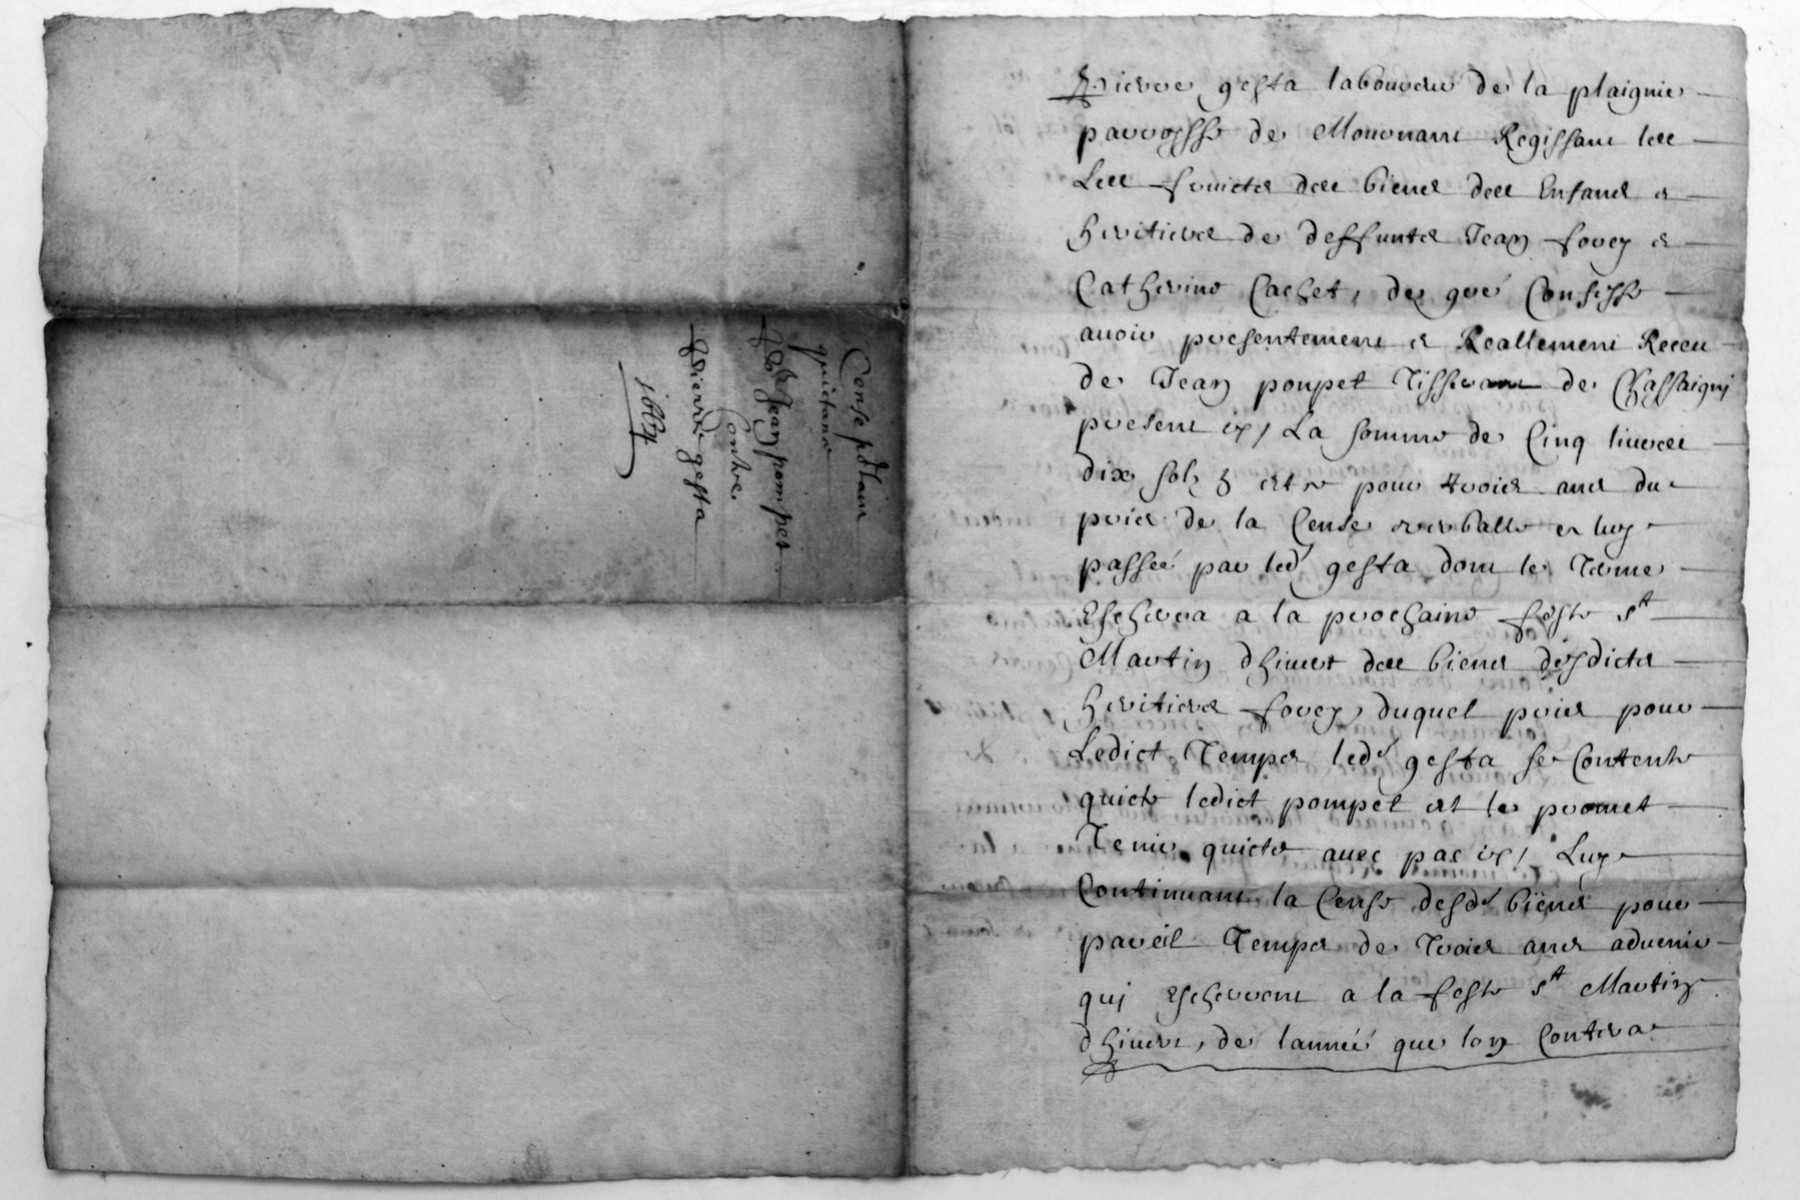 Pierre gesta laboureur de la plaignie
parroysse de Mournant Regissant les
Les fruictz des biens des Enfans &
heritiers de deffuntz Jean fovey &
Catherine Cachet, de gré Confesse
avoir presentement & Reallement Receu
de Jean pompet Tisserant de Chassaigni
present &c, La somme de Cinq livres
dix solz & est ce pour trois ans du
prix de la Cense verballe a luy
passée par led gesta dont le Terme
Escherra a la prochaine feste st
Martin dhiver des biens desdictz
heritiers fovey, duquel prix pour
Ledict Temps led gesta se Contente
quicte ledict pompet et le promet
Tenir quicte avec pac &c, Luy
Continuant la Cense desd biens pour
pareil Temps de Trois ans advenir
qui Escherront a la feste st Martin
dhiver, de lannée que lon Contera
Cense
quictance
Jean pompet
Contre
Pierre gesta
jolly